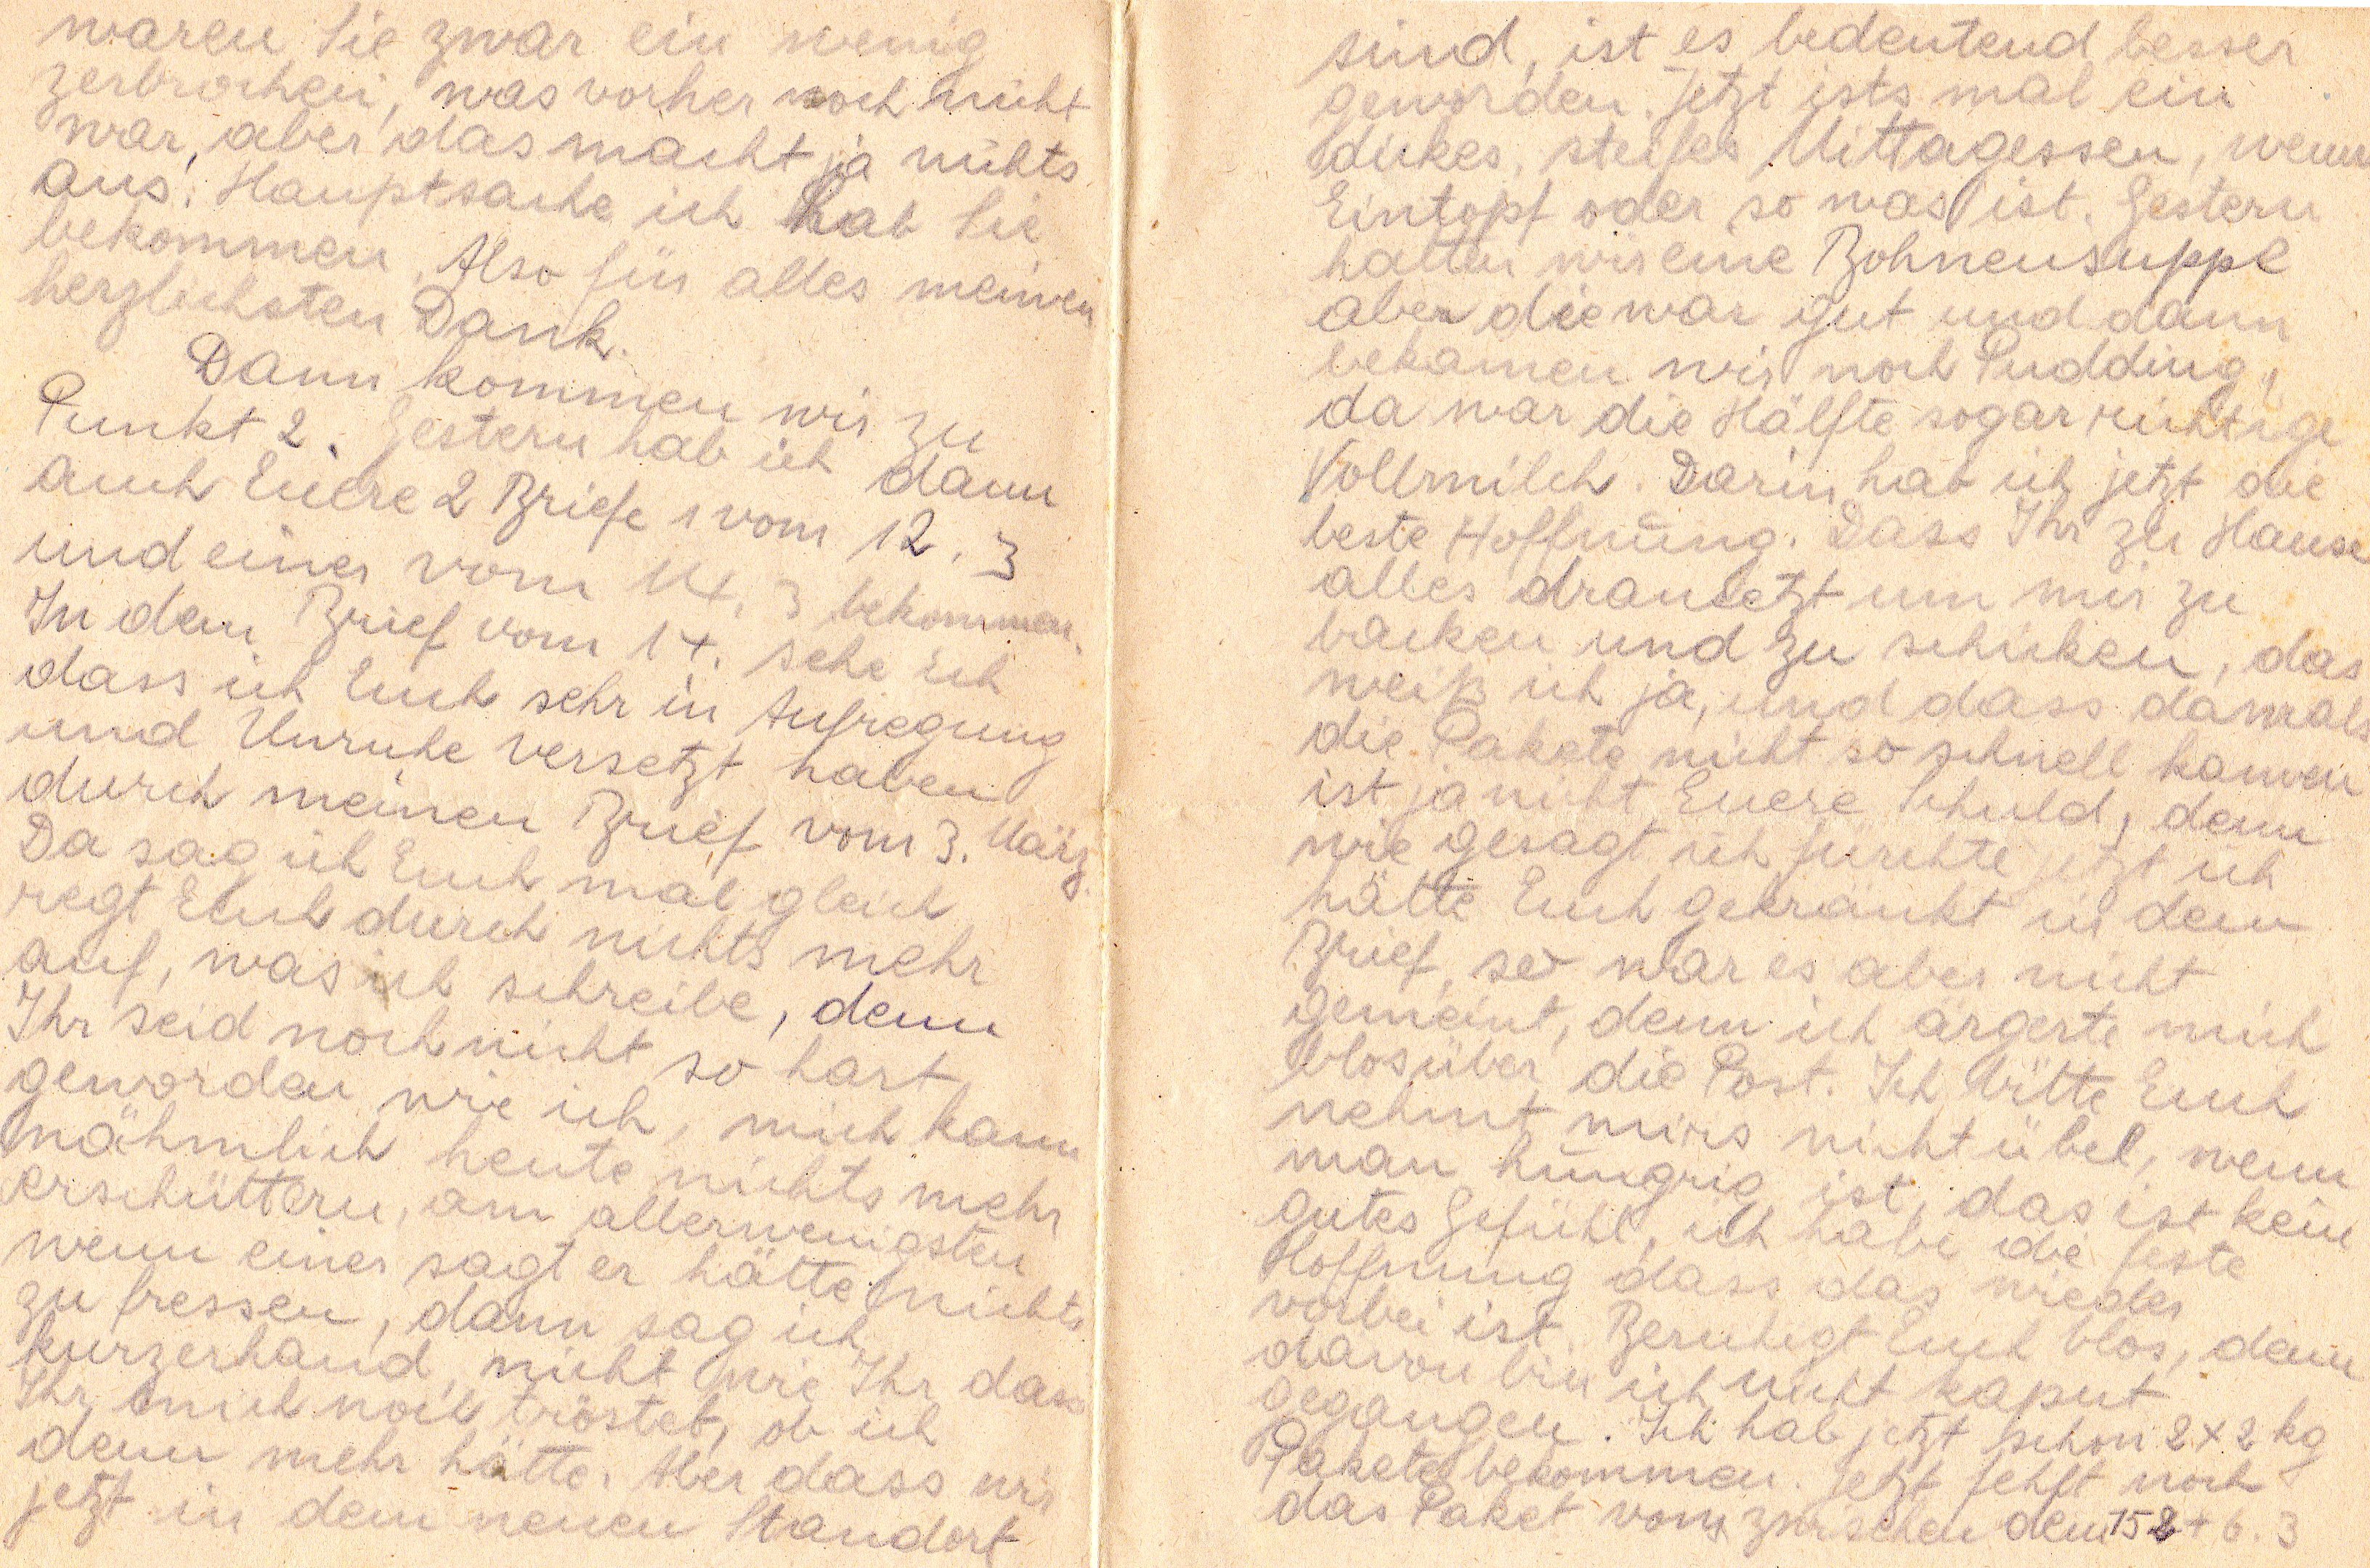 waren Sie zwar ein wenig
zerbrochen, was vorher noch nicht
war, aber das macht ja nichts
aus. Hauptsache ich hab Sie
bekommen. Also für alles meinen
herzlichsten Dank.
Dann kommen wir zu
Punkt 2. Gestern hab ich dann
auch Euere 2 Briefe 1 vom 12. 3
und einer vom 14. 3 bekommen.
In dem Brief vom 14. sehe ich
dass ich Euch sehr in Aufregung
und Unruhe versetzt haben
durch meinen Brief vom 3. März.
Da sag ich Euch mal gleich
regt Euch durch nichts mehr
auf, was ich schreibe, denn
Ihr seid noch nicht so hart
geworden wie ich, mich kann
nähmlich heute nichts mehr
erschüttern, am allerwenigsten
wenn einer sagt er hätte nichts
zu fressen, dann sag ich
kurzerhand, nicht wie Ihr dass
Ihr mich noch tröstet, ob ich
denn mehr hätte. Aber dass wir
jetzt in dem neuen Standort
sind, ist es bedeutend besser
geworden. Jetzt ists mal ein
dickes, steifes Mittagessen, wenns
Eintopf oder so was ist. Gestern
hatten wir eine Bohnensuppe
aber die war gut und dann
bekamen wir noch Pudding,
da war die Hälfte sogar richtige
Vollmilch. Darin hab ich jetzt die
beste Hoffnung. Dass Ihr zu Hause
alles dransetzt um mir zu
backen und zu schicken, das
weiß ich ja, und dass damals
die Pakete nicht so schnell kamen
ist ja nicht Euere Schuld, denn
wie gesagt ich fürchte jetzt ich
hätte Euch gekränkt in dem
Brief, so war es aber nicht
gemeint, denn ich ärgerte mich
blos über die Post. Ich bitte Euch
nehmt mirs nicht übel, wenn
man hungrig ist, das ist kein
gutes Gefühl, ich habe die feste
Hoffnung dass das wieder
vorbei ist. Beruhigt Euch blos, denn
davon bin ich nicht kaput
gegangen. Ich hab jetzt schon 2 x 2 kg
Pakete bekommen. Jetzt fehlt noch
das Paket vom zwischen dem 15 2 + 6. 3